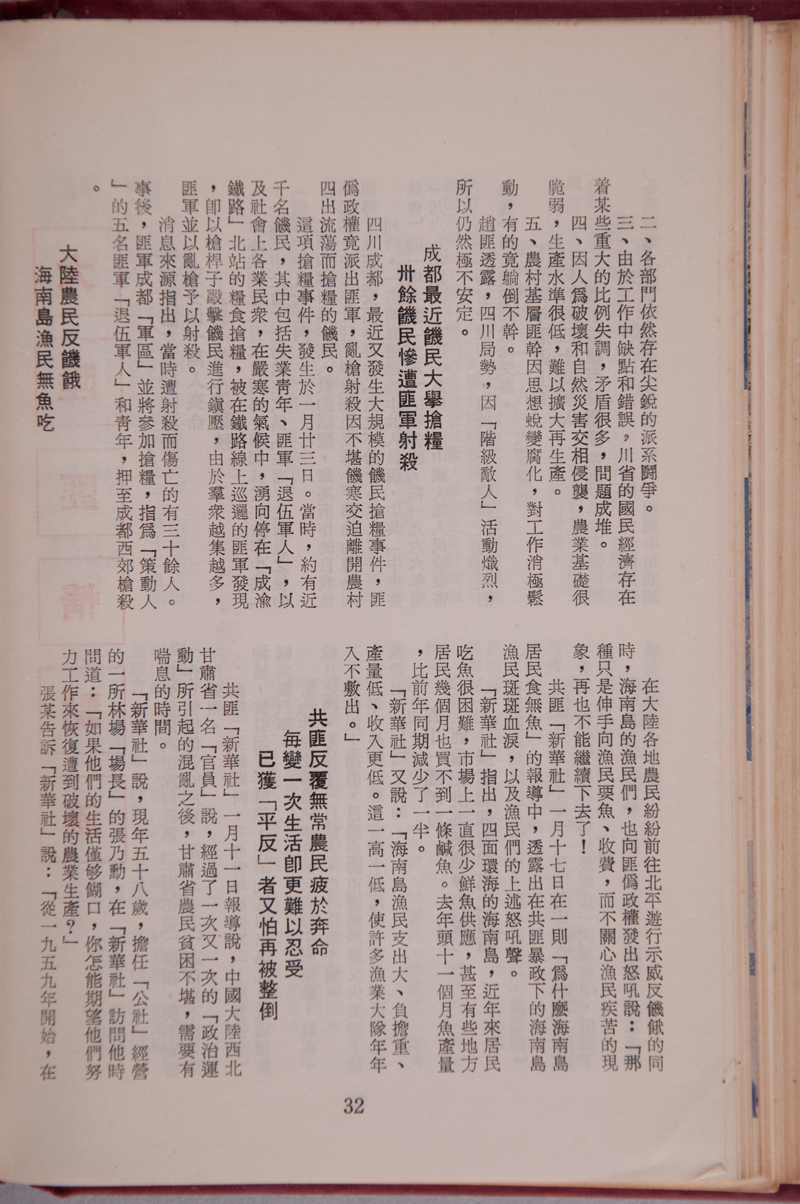 二、各部門依然存在尖銳的派系鬪爭。
三、由於工作中缺點和錯誤，川省的國民經濟存在
着某些重大的比例失調，矛盾很多，問題成堆。
四、因人爲破壞和自然災害交相侵襲，農業基礎很
脆弱，生產水準很低，難以擴大再生產。
五、農村基層匪幹因思想蛻變腐化，對工作消極鬆
動，有的竟躺倒不幹。
趙匪透露，四川局勢，因「階級敵人」活動熾烈，
所以仍然極不安定。
成都最近饑民大舉搶糧
卅餘饑民慘遭匪軍射殺
四川成都，最近又發生大規模的饑民搶糧事件，匪
僞政權竟派出匪軍，亂槍射殺因不堪饑寒交迫離開農村
四出流蕩而搶糧的饑民。
這項搶糧事件，發生於一月廿三日。當時，約有近
千名饑民，其中包括失業靑年、匪軍「退伍軍人」，以
及社會上各業民衆，在嚴寒的氣候中，湧向停在「成渝
鐵路」北站的糧食搶糧，被在鐵路線上巡邏的匪軍發現
，卽以槍桿子毆擊饑民進行鎭壓，由於羣衆越集越多，
匪軍並以亂槍予以射殺。
消息來源指出，當時遭射殺而傷亡的有三十餘人。
事後，匪軍成都「軍區」並將參加搶糧，指爲「策動人
」的五名匪軍「退伍軍人」和靑年，押至成都西郊槍殺
。
大陸農民反饑餓
海南島漁民無魚吃
在大陸各地農民紛紛前往北平遊行示威反饑餓的同
時，海南島的漁民們，也向匪僞政權發出怒吼說：「那
種只是伸手向漁民要魚、收費，而不關心漁民疾苦的現
象，再也不能繼續下去了！
共匪「新華社」一月十七日在一則「爲什麼海南島
居民食無魚」的報導中，透露出在共匪暴政下的海南島
漁民斑斑血淚，以及漁民們的上述怒吼聲。
「新華社」指出，四面環海的海南島，近年來居民
吃魚很困難，市場上一直很少鮮魚供應，甚至有些地方
居民幾個月也買不到一條鹹魚。去年頭十一個月魚產量
，比前年同期減少了一半。
「新華社」又說：「海南島漁民支出大、負擔重、
產量低、收入更低。這一高一低，使許多漁業大隊年年
入不敷出。」
共匪反覆無常農民疲於奔命
每變一次生活卽更難以忍受
已獲「平反」者又怕再被整倒
共匪「新華社」一月十一日報導說，中國大陸西北
甘肅省一名「官員」說，經過了一次又一次的「政治運
動」所引起的混亂之後，甘肅省農民貧困不堪，需要有
喘息的時間。
「新華社」說，現年五十八歲，擔任「公社」經營
的一所林場「場長」的張乃動，在「新華社」訪問他時
問道：「如果他們的生活僅够餬口，你怎能期望他們努
力工作來恢復遭到破壞的農業生產？」
張某告訴「新華社」說：「從一九五九年開始，在
32